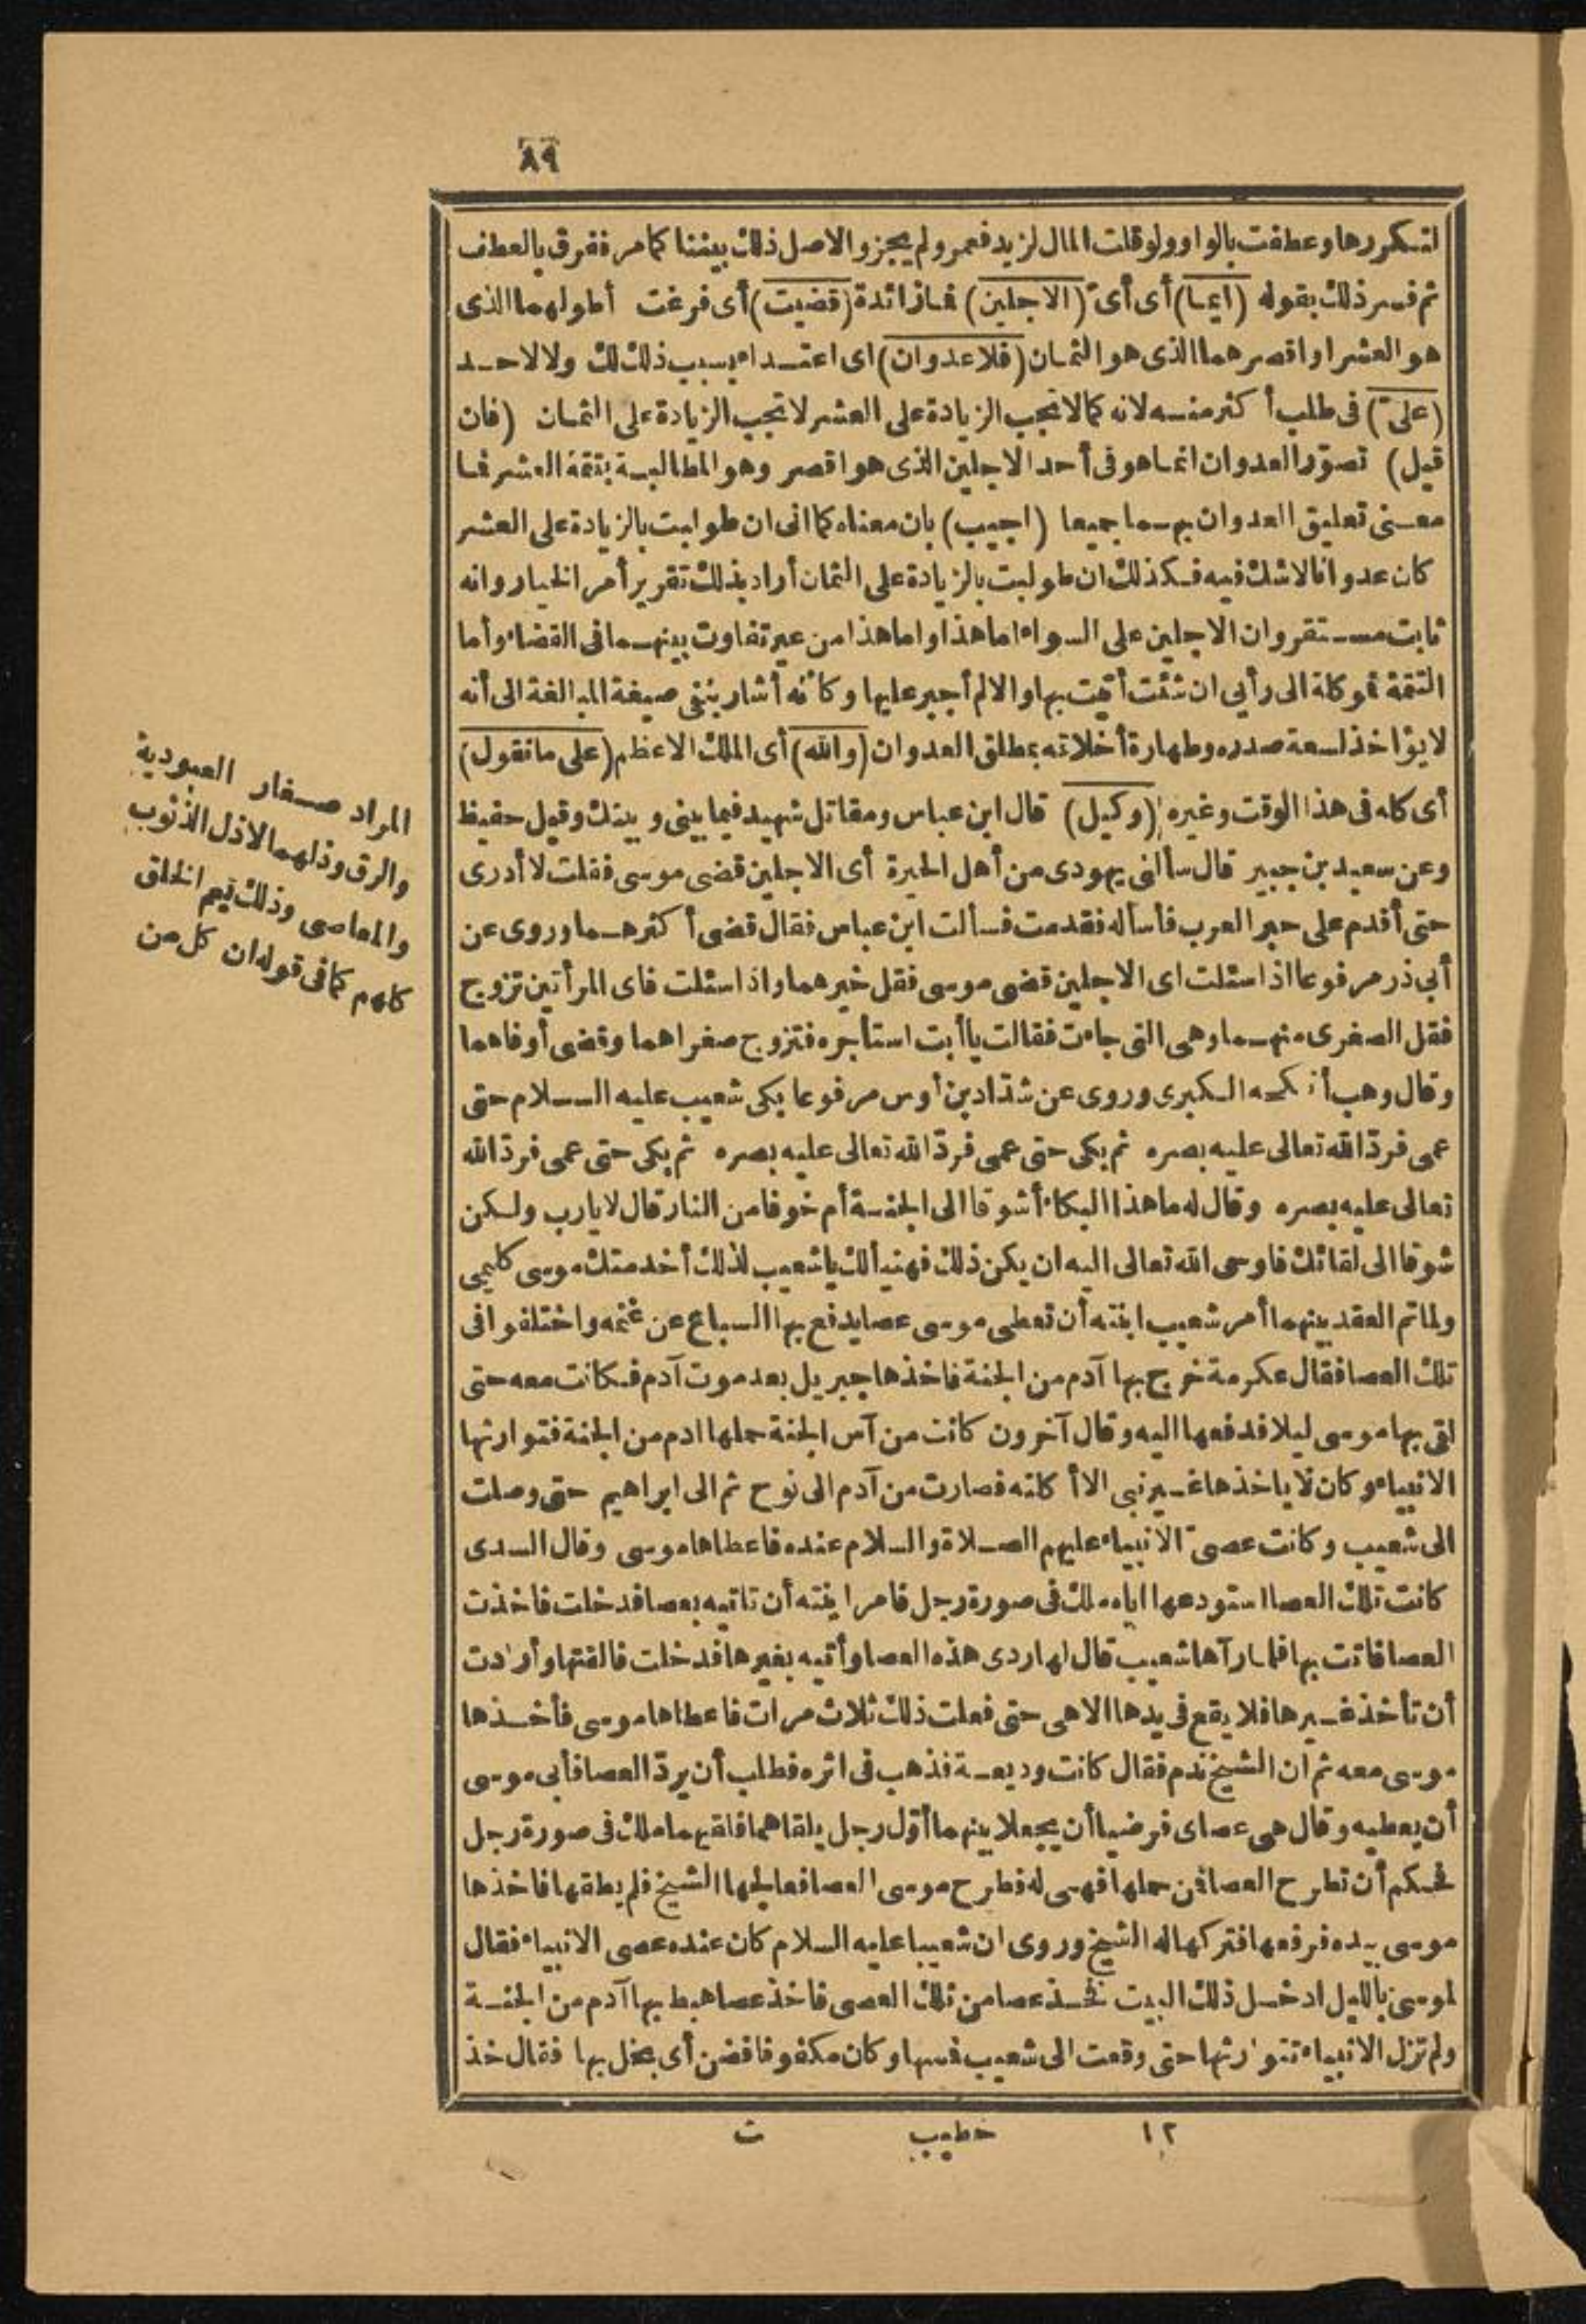 ٨٩
لتكررها وعطفت بالواو ولو قلت المال لزيد فعمرو لم يجز والاصل ذلك بيننا كما مر ففرق بالعطف
ثم فسر ذلك بقوله (ايما) أى أىّ (الاجلين) فما زائدة (قضيت) أى فرغت أطولهما الذى
هو العشر او اقصرهما الذى هو الثمان (فلا عدوان) اى اعتداء بسبب ذلك لك ولا لاحد
(علىّ) فى طلب أكثر منه لانه كما لا تجب الزيادة على العشر لا تجب الزيادة على الثمان (فان
قيل) تصوّر العدوان انما هو فى أحد الاجلين الذى هو اقصر وهو المطالبة بتتمة العشر فما
معنى تعليق العدوان بهما جميعا (اجيب) بان معناه كما انى ان طولبت بالزيادة على العشر
كان عدوانا لا شك فيه فكذلك ان طولبت بالزيادة على الثمان أراد بذلك تقرير أمر الخيار وانه
ثابت مستقر وان الاجلين على السواء اما هذا واما هذا من غير تفاوت بينهما فى القضاء وأما
التتمة فموكلة الى رأيي ان شئت أتيت بها والا لم أجبر عليها وكأنه أشار بنفى صيغة المبالغة الى أنه
لا يؤاخذ لسعة صدره وطهارة أخلاقه بمطلق العدوان (والله) أى الملك الاعظم (على ما نقول)
أى كله فى هذا الوقت وغيره (وكيل) قال ابن عباس ومقاتل شهيد فيما بينى وبينك وقيل حفيظ
وعن سعيد بن جبير قال سألنى يهودى من أهل الحيرة أى الاجلين قضى موسى فقلت لا أدرى
حتى أقدم على حبر العرب فأسأله فقدمت فسألت ابن عباس فقال قضى أكثرهما وروى عن
أبى ذر مرفوعا اذا سئلت اى الاجلين قضى موسى فقل خيرهما واذا سئلت فاى المرأتين تزوج
فقل الصغرى منهما وهى التى جاءت فقالت يا أبت استأجره فتزوج صغراهما وقضى أوفاهما
وقال وهب أنكحه الكبرى وروى عن شدّاد بن أوس مرفوعا بكى شعيب عليه السلام حتى
عمى فردّ الله تعالى عليه بصره ثم بكى حتى عمى فردّ الله تعالى عليه بصره ثم بكى حتى عمى فردّ الله
تعالى عليه بصره وقال له ما هذا البكاء أشوقا الى الجنة أم خوفا من النار قال لا يارب ولكن
شوقا الى لقائك فاوحى الله تعالى اليه ان يكن ذلك فهنيأ لك يا شعيب لذلك أخدمتك موسى كليمى
ولما تم العقد بينهما أمر شعيب ابنته أن تعطى موسى عصا يدفع بها السباع عن غنمه واختلفوا فى
تلك العصا فقال عكرمة خرج بها آدم من الجنة فاخذها جبريل بعد موت آدم فكانت معه حتى
اتى بها موسى ليلا فدفعها اليه وقال آخرون كانت من آس الجنة حملها ادم من الجنة فتوارثها
الانبياء وكان لا ياخذها غير نبى الا أكلته فصارت من آدم الى نوح ثم الى ابراهيم حتى وصلت
الى شعيب وكانت عصىّ الانبياء عليهم الصلاة والسلام عنده فاعطاها موسى وقال السدى
كانت تلك العصا استودعها اياه ملك فى صورة رجل فامر ابنته أن تاتيه بعصا فدخلت فاخذت
العصا فاتت بها فلما رآها شعيب قال لها ردى هذه العصا وأتيه بغيرها فدخلت فالقتها وأرادت
أن تأخذ غيرها فلا يقع فى يدها الا هى حتى فعلت ذلك ثلاث مرات فاعطاها موسى فأخذها
موسى معه ثم ان الشيخ ندم فقال كانت وديعة فذهب فى اثره فطلب أن يردّ العصا فأبى موسى
أن يعطيه وقال هى عصاى فرضيا أن يجعلا بينهما أوّل رجل يلقاهما فلقيهما ملك فى صورة رجل
فحكم أن تطرح العصا فمن حملها فهى له فطرح موسى العصا فعالجها الشيخ فلم يطقها فاخذها
موسى بيده فرفعها فتركها له الشيخ وروى ان شعيبا عليه السلام كان عنده عصى الانبياء فقال
لموسى بالليل ادخل ذلك البيت فخذ عصا من تلك العصى فاخذ عصا هبط بها آدم من الجنة
ولم تزل الانبياء تتوارثها حتى وقعت الى شعيب فمسها وكان مكفوفا فضن أى بخل بها فقال خذ
المراد صغار العبودية
والرق وذلهما لا ذل الذنوب
والمعاصى وذلك يعم الخلق
كلهم كما فى قوله ان كل من
١٢ خطيب ت